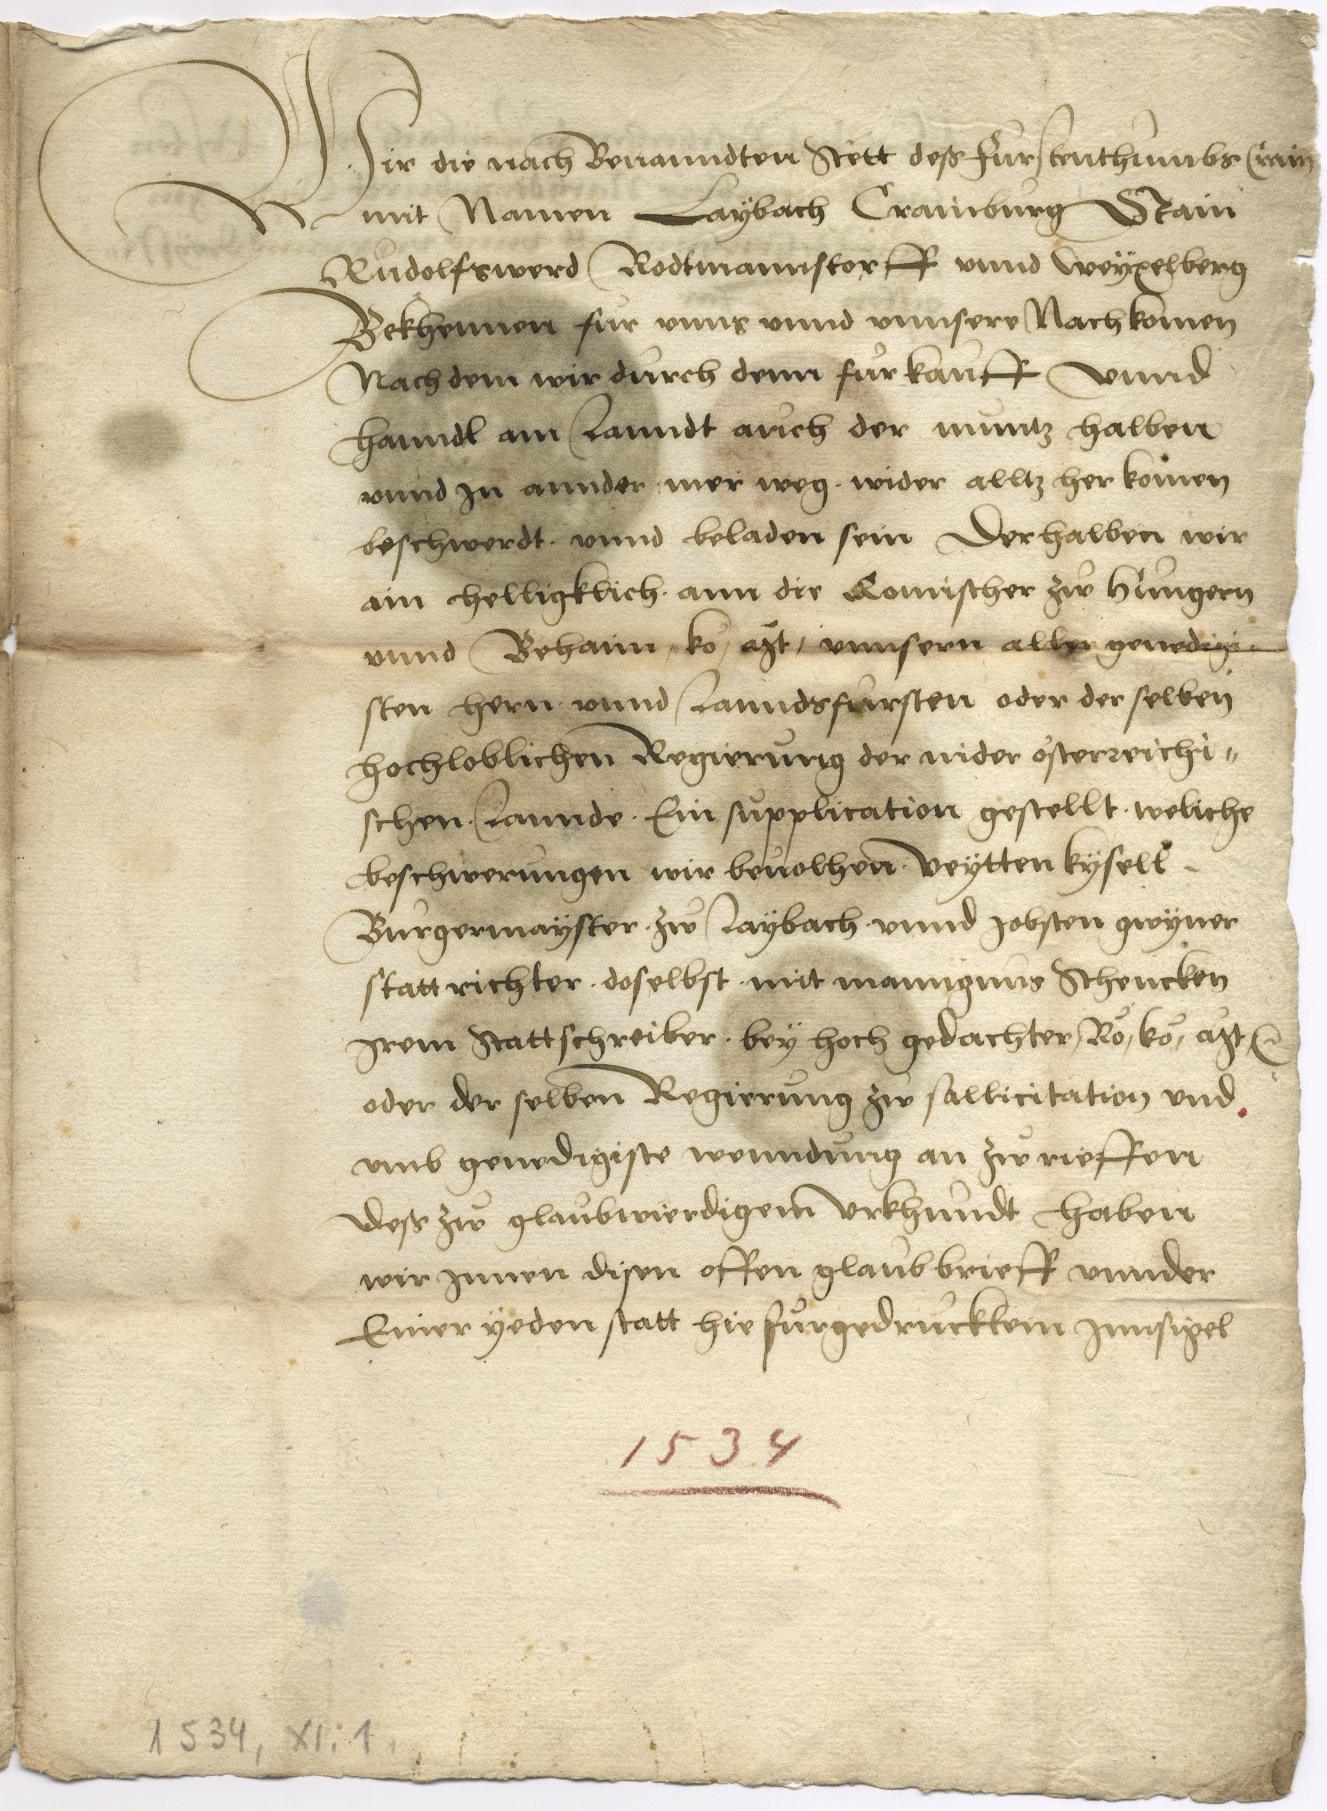 Wir die nach Benanndten Stett deß Fürstenthumbs Crain
mit Namen Laÿbach Crainburg Stain
Rudolfswerd Rodtmannstorff vnnd Weÿxelberg
Bekhennen für vnns vnnd vnnsere Nachkomen
Nach dem wir durch denn fürkauff vnnd
hanndl am Lanndt auch der muntz halben
vnnd In annder mer weg. wider alltz herkomen
beschwerdt. vnnd beladen sein Derhalben wir
ain helligklich. ann die Romischer zw Hungern
vnnd Behaim, ko, Mt, vnnsern aller genedigi-
sten hern vnnd Lanndsfürsten oder der selben
hochloblichen Regierung der nider österreichi„
schen. Lannde. Ein supplication gestellt. weliche
beschwerungen wir beuolhen. Veÿtten Kÿsell.
Burgermaÿster. zw Laybach. vnnd Jobsten gwÿner
statt richter. doselbst. mit mangnus Schencken
Irem Stattschreiber. beÿ hoch gedachter, Rö, kö, Mt,
oder der selben Regierung zw sallicitation vnd
vmb genedigiste wenndung an zw rieffen
Deß zw glaubwierdigem Vrkhundt haben
wir Innen disen offen glaub brieff vnnder
Einer yeden statt hie fürgedrucktem Innsigel
1534
1534, XI. 1.